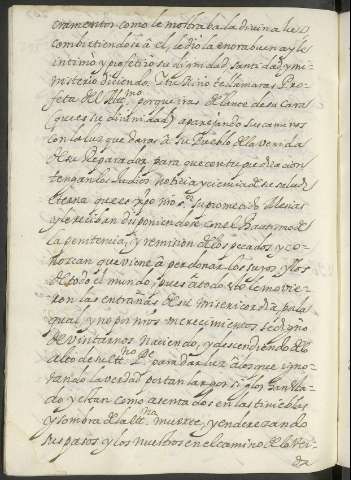 cramentos como le mostraba la divina luz,
combirtiendose à el, le diò la enora buena, y le
intimò y profetizò su dignidad santidad, y mi-
nisterio diciendo. Tu Niño te llamaras Pro-
feta del Altᵐᵒ porque iras delante de su cara
(que es su divinidad) aparejando sus caminos
con la luz que daras à su Pueblo de la venida
de su Reparador, para que con tu predicacion
tengan los Judios noticia y ciencia de su salud
eterna que es xpto nʳᵒ sʳ su prometido Mesias
y le reciban disponiendose con el Bautismo de
la penitencia, y remision de los pecados, y co-
nozcan que viene à perdonar los suyos, y los
de todo el mundo, pues a todo esto le movie-
ron las entrañas de su misericordia por la
qual, y no por nʳᵒˢ merecimientos se dignò
de visitarnos naciendo, y descendiendo de lo
alto de su Etᵉʳⁿᵒ Pᵉ para dar luz à los que igno-
rando la verdad por tan largos siglos han esta-
do y estan como asentados en las tinieblas
y sombra de la Etᵉʳⁿᵃ muerte, y enderezando
sus pasos, y los nuestros en el camino de la ver-
da